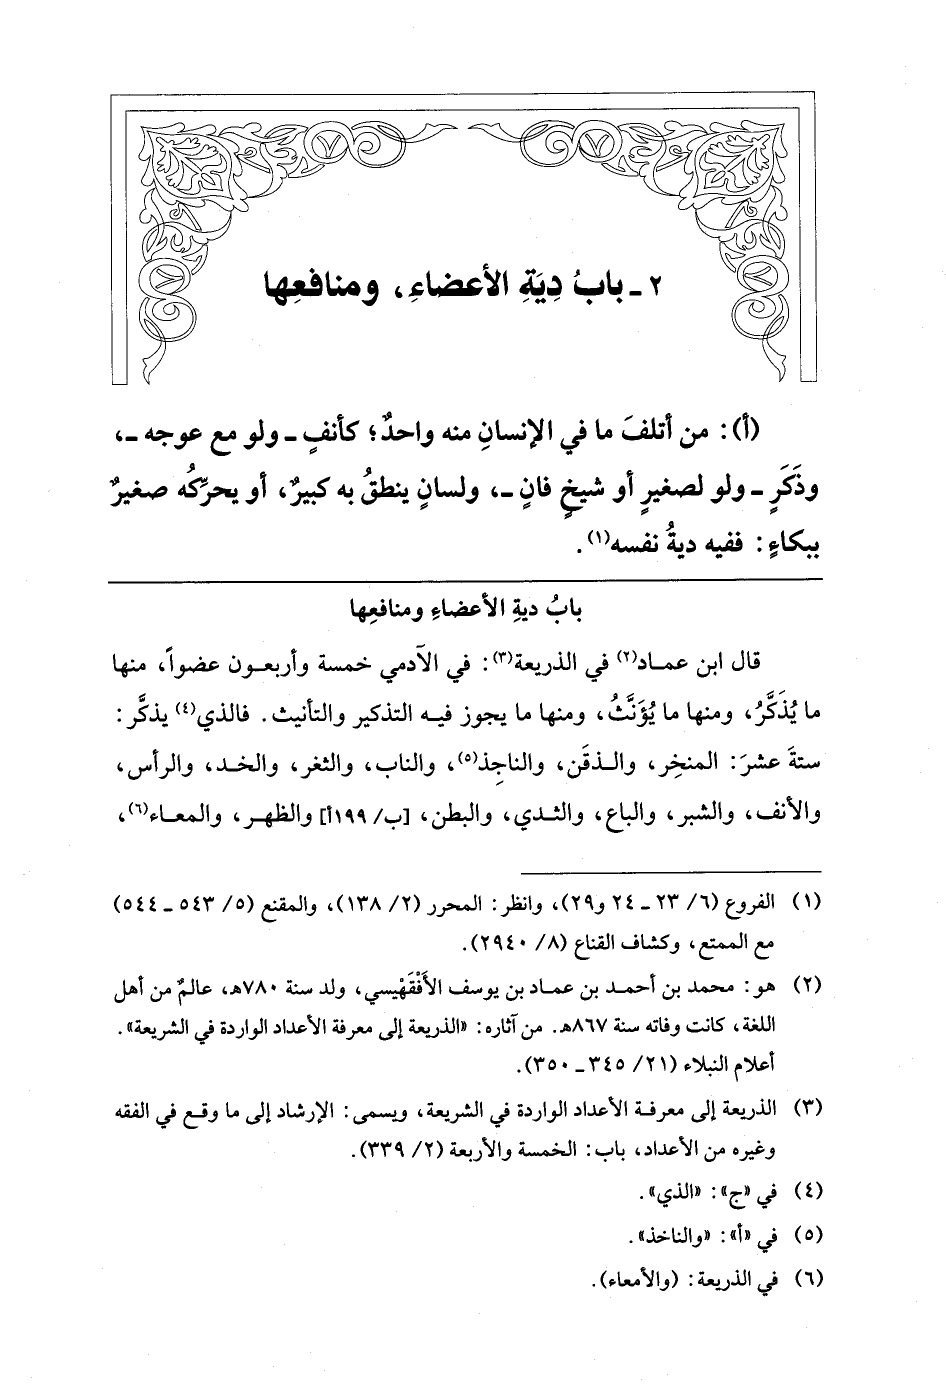 ٢ ـ بابُ دِيَةِ الأعضاءِ، ومنافعِها
(أ): من أتلفَ ما في الإنسانِ منه واحدٌ؛ كأنفٍ ـ ولو مع عوجه ـ،
وذَكَرٍ ـ ولو لصغيرٍ أو شيخٍ فانٍ ـ، ولسانٍ ينطقُ به كبيرٌ، أو يحرِّكُه صغيرٌ
ببكاءٍ: ففيه ديةُ نفسه(١).
بابُ ديةِ الأعضاءِ ومنافعِها
قال ابن عمـاد(٢) في الذريعة(٣): في الآدمي خمسة وأربعـون عضواً، منها
ما يُذَكَّرُ، ومنها ما يُؤَنَّثُ، ومنها ما يجوز فيـه التذكير والتأنيث. فالذي(٤) يذكَّر:
ستةَ عشرَ: المنخِر، والـذقَن، والناجِذ(٥)، والناب، والثغر، والخـد، والرأس،
والأنف، والشبر، والباع، والثـدي، والبطن، [ب/ ١٩٩أ] والظهـر، والمعـاء(٦)،
(١) الفروع (٦/ ٢٣ ـ ٢٤ و٢٩)، وانظر: المحرر (٢/ ١٣٨)، والمقنع (٥/ ٥٤٣ ـ ٥٤٤)
مع الممتع، وكشاف القناع (٨/ ٢٩٤٠).
(٢) هو: محمد بن أحمـد بن عمـاد بن يوسف الأَقْفَهْيسي، ولد سنة ٧٨٠هـ، عالمٌ من أهل
اللغة، كانت وفاته سنة ٨٦٧هـ. من آثاره: «الذريعة إلى معرفة الأعداد الواردة في الشريعة».
أعلام النبلاء (٢١/ ٣٤٥ ـ ٣٥٠).
(٣) الذريعة إلى معرفـة الأعداد الواردة في الشريعة، ويسمى: الإرشاد إلى ما وقـع في الفقه
وغيره من الأعداد، باب: الخمسة والأربعة (٢/ ٣٣٩).
(٤) في «ج»: «الذي».
(٥) في «أ»: «والناخذ».
(٦) في الذريعة: (والأمعاء).